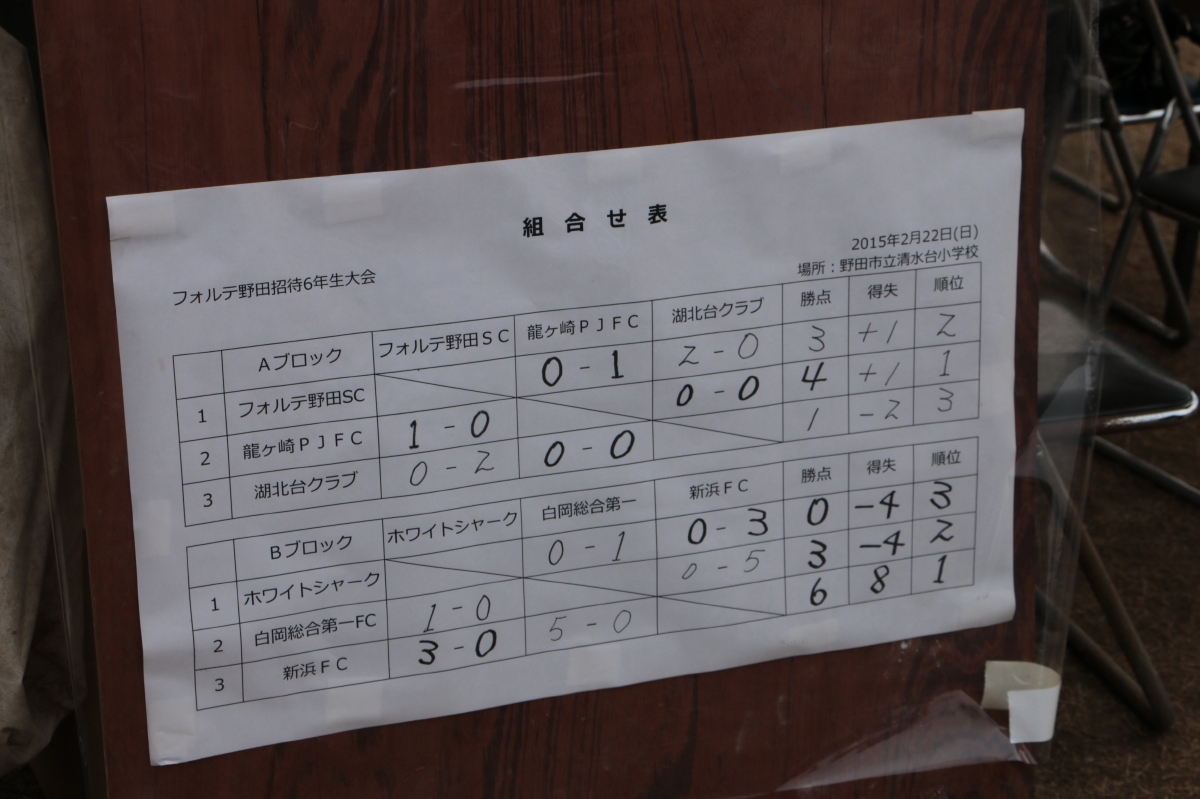 組合せ表
2015年2月22日(日)
フォルテ野田招待6年生大会 場所：野田市立清水台小学校
Aブロック フォルテ野田ＳＣ 龍ヶ崎ＰＪＦＣ 湖北台クラブ 勝点 得失 順位
1 フォルテ野田SC 0 - 1 2 - 0 3 +1 2
2 龍ヶ崎ＰＪＦＣ 1 - 0 0 - 0 4 +1 1
3 湖北台クラブ 0 - 2 0 - 0 1 -2 3
Bブロック ホワイトシャーク 白岡総合第一 新浜ＦＣ 勝点 得失 順位
1 ホワイトシャーク 0 - 1 0 - 3 0 -4 3
2 白岡総合第一FC 1 - 0 0 - 5 3 -4 2
3 新浜ＦＣ 3 - 0 5 - 0 6 8 1